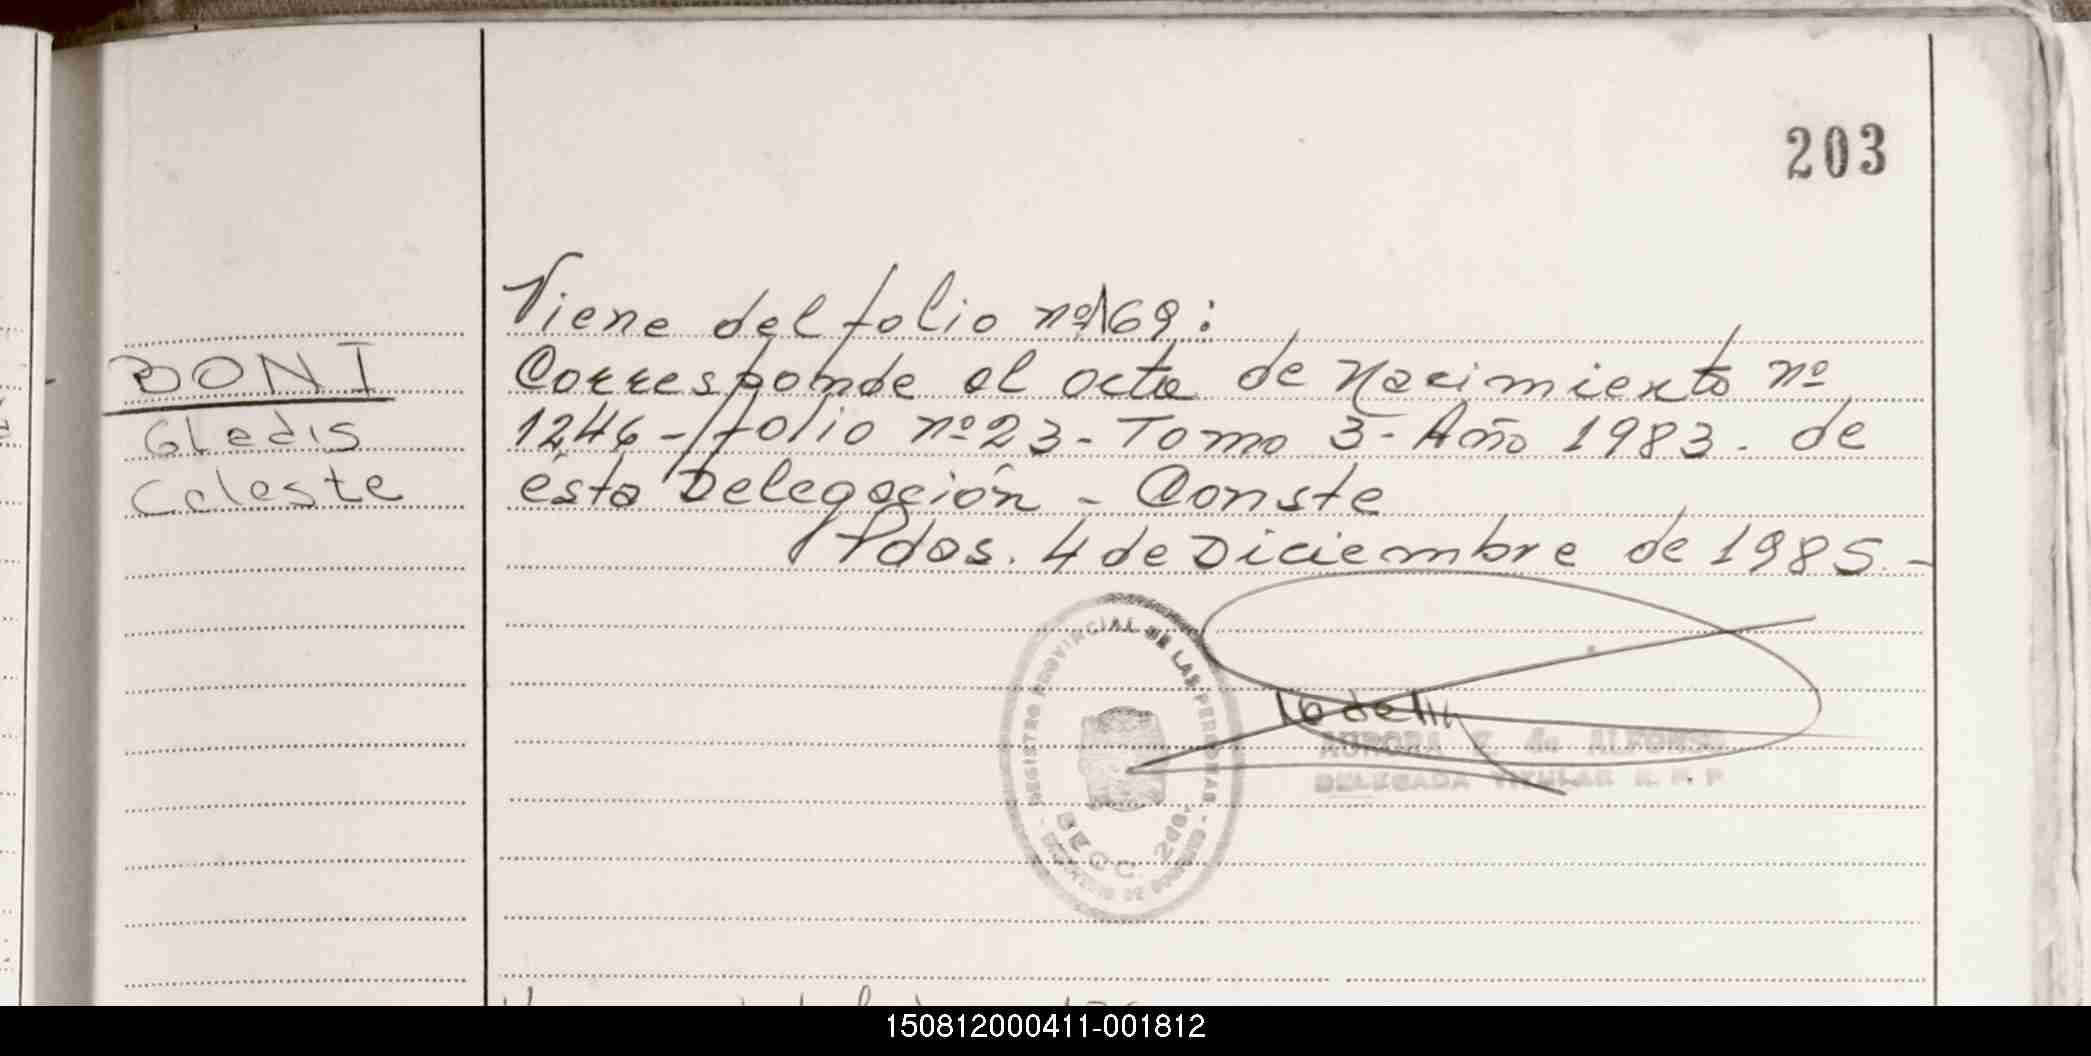 203
Viene del folio nº 169:
BONI
Corresponde al acta de nacimiento nº
Gladis
1246 - folio nº 23 - Tomo 3 - Año 1983 - de
Celeste
ésta Delegación - Conste
Pdas. 4 de Diciembre de 1985.-
REGISTRO PROVINCIAL DE LAS PERSONAS
SECC. 2da.
AURORA E. de ALFONSO
DELEGADA TITULAR R. P. P
150812000411-001812